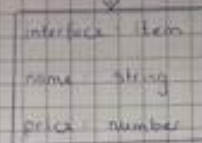 interface Item
name string
price number